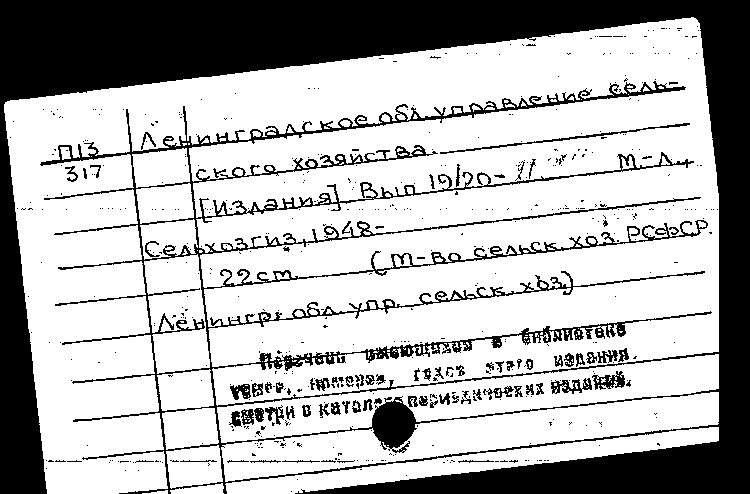 П13
317
Ленинградское обл. управление сель-
ского хозяйства.
[Издания] Вып 19/20- М-Л.,
Сельхозгиз, 1948-
22cm. (М-во сельск. хоз. РСФСР.
Ленингр. обл. упр. сельск. хоз.)
Перечень имеющихся в библиотеке
томов, номеров, годов этого издания
смотри в каталоге периодических изданий.